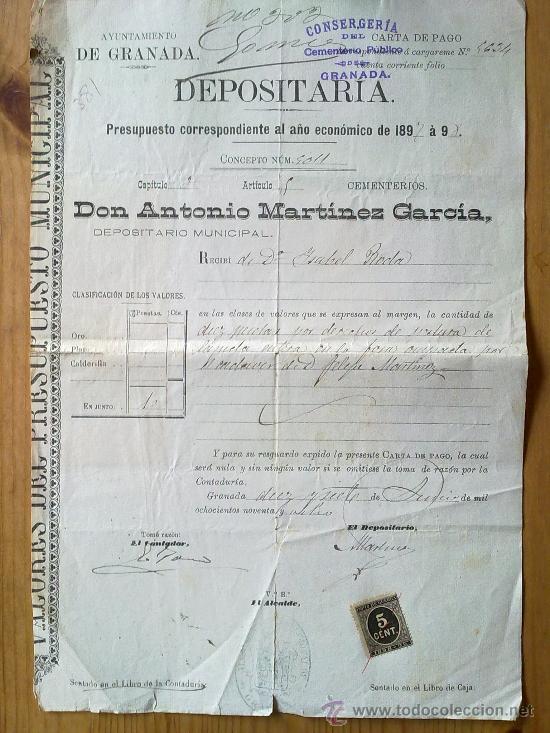 No 222
AYUNTAMIENTO
DE GRANADA.
CONSERGERÍA
DEL
Cementerio Público
DE
GRANADA.
CARTA DE PAGO
á cargareme N.º
cuenta corriente folio
DEPOSITARIA.
Presupuesto correspondiente al año económico de 1897 à 98.
CONCEPTO NÚM.
Capítulo Artículo 5 CEMENTERIOS.
Don Antonio Martínez García,
DEPOSITARIO MUNICIPAL.
RECIBÍ de D.ª Isabel Roda
CLASIFICACIÓN DE LOS VALORES.
Pesetas. Cts.
Oro
Plata
Calderilla
EN JUNTO. 10
en las clases de valores que se expresan al márgen, la cantidad de
diez pesetas por derechos de postura de
en la fosa ocupada por
el cadaver de d Felipe Martinez
Y para su resguardo expido la presente CARTA DE PAGO, la cual
será nula y sin ningún valor si se omitiese la toma de razón por la
Contaduría.
Granada diez y siete de Junio de mil
ochocientos noventa y ocho
Tomé razón:
El Contador,
El Depositario,
Martinez
V.º B.º
El Alcalde,
5
CENT.
Sentado en el Libro de la Contaduría
Sentado en el Libro de Caja:
VALORES DEL PRESUPUESTO MUNICIPAL
todocoleccion.net